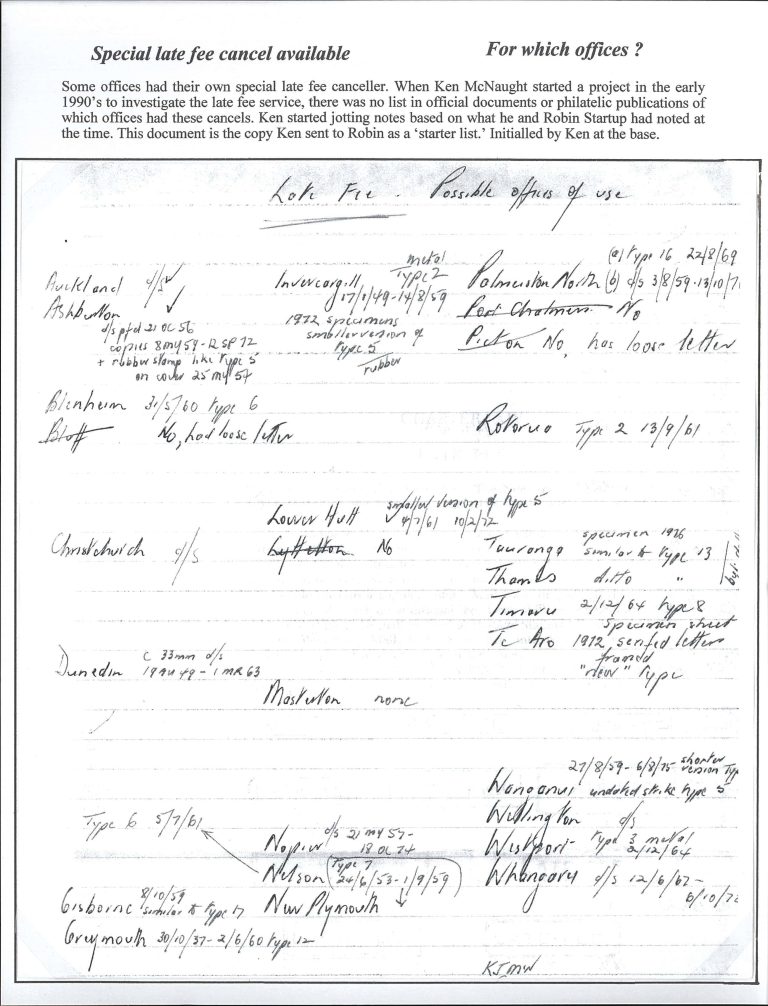 Special late fee cancel available
For which offices ?
Some offices had their own special late fee canceller. When Ken McNaught started a project in the early
1990's to investigate the late fee service, there was no list in official documents or philatelic publications of
which offices had these cancels. Ken started jotting notes based on what he and Robin Startup had noted at
the time. This document is the copy Ken sent to Robin as a 'starter list.' Initialled by Ken at the base.
Late Fee - Possible offices of use
Auckland d/s
Ashburton
d/s pfd 21 OC 56
copies 8 my 59 - 12 SP 72
+ rubber stamp like type 5
on cover 25 my 54
Blenheim 31/5/60 type 6
Bluff No, had loose letter
Christchurch d/s
Dunedin c 33mm d/s
19 AU 49 - 1 MR 63
Type 6 5/7/61
Gisborne 8/10/59
similar to type 17
Greymouth 30/10/37 - 2/6/60 type 12
Invercargill metal
Type 2
17/1/49 - 14/8/59
1972 specimens
smaller version of
type 5
rubber
Lower Hutt smaller version of type 5
4/7/61 10/2/72
Lyttelton No
Masterton none
Napier d/s 21 my 57 -
18 OC 74
Nelson (Type 7
24/6/53 - 1/9/59)
New Plymouth
Palmerston North (a) type 16 22/8/69
(b) d/s 3/8/59 - 13/10/7
Port Chalmers No
Picton No, has loose letter
Rotorua Type 2 13/9/61
Tauranga specimen 1976
similar to type 13
Thames ditto "
Timaru 2/12/64 type 8
Te Aro specimen sheet
1972, serifed letters
framed
"new" type
Wanganui 27/8/59 - 6/8/75 shorter
version Typ
undated strike type 5
Wellington d/s
Westport type 3 metal
2/12/64
Whangarei d/s 12/6/67 -
6/10/72
KJMW